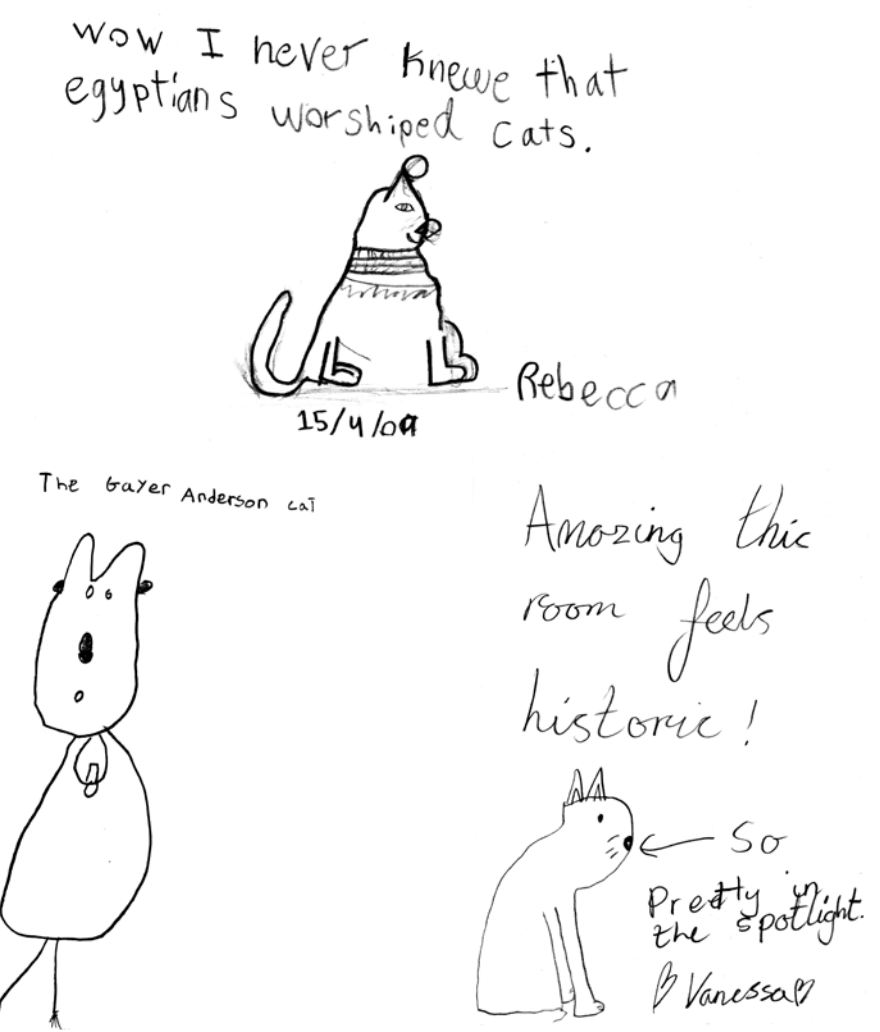 wow I never knewe that
egyptians worshiped cats.
Rebecca
15/4/09
The Gayer Anderson cat
Amazing this
room feels
historic!
So
Pretty in
the spotlight.
♡ Vanessa ♡